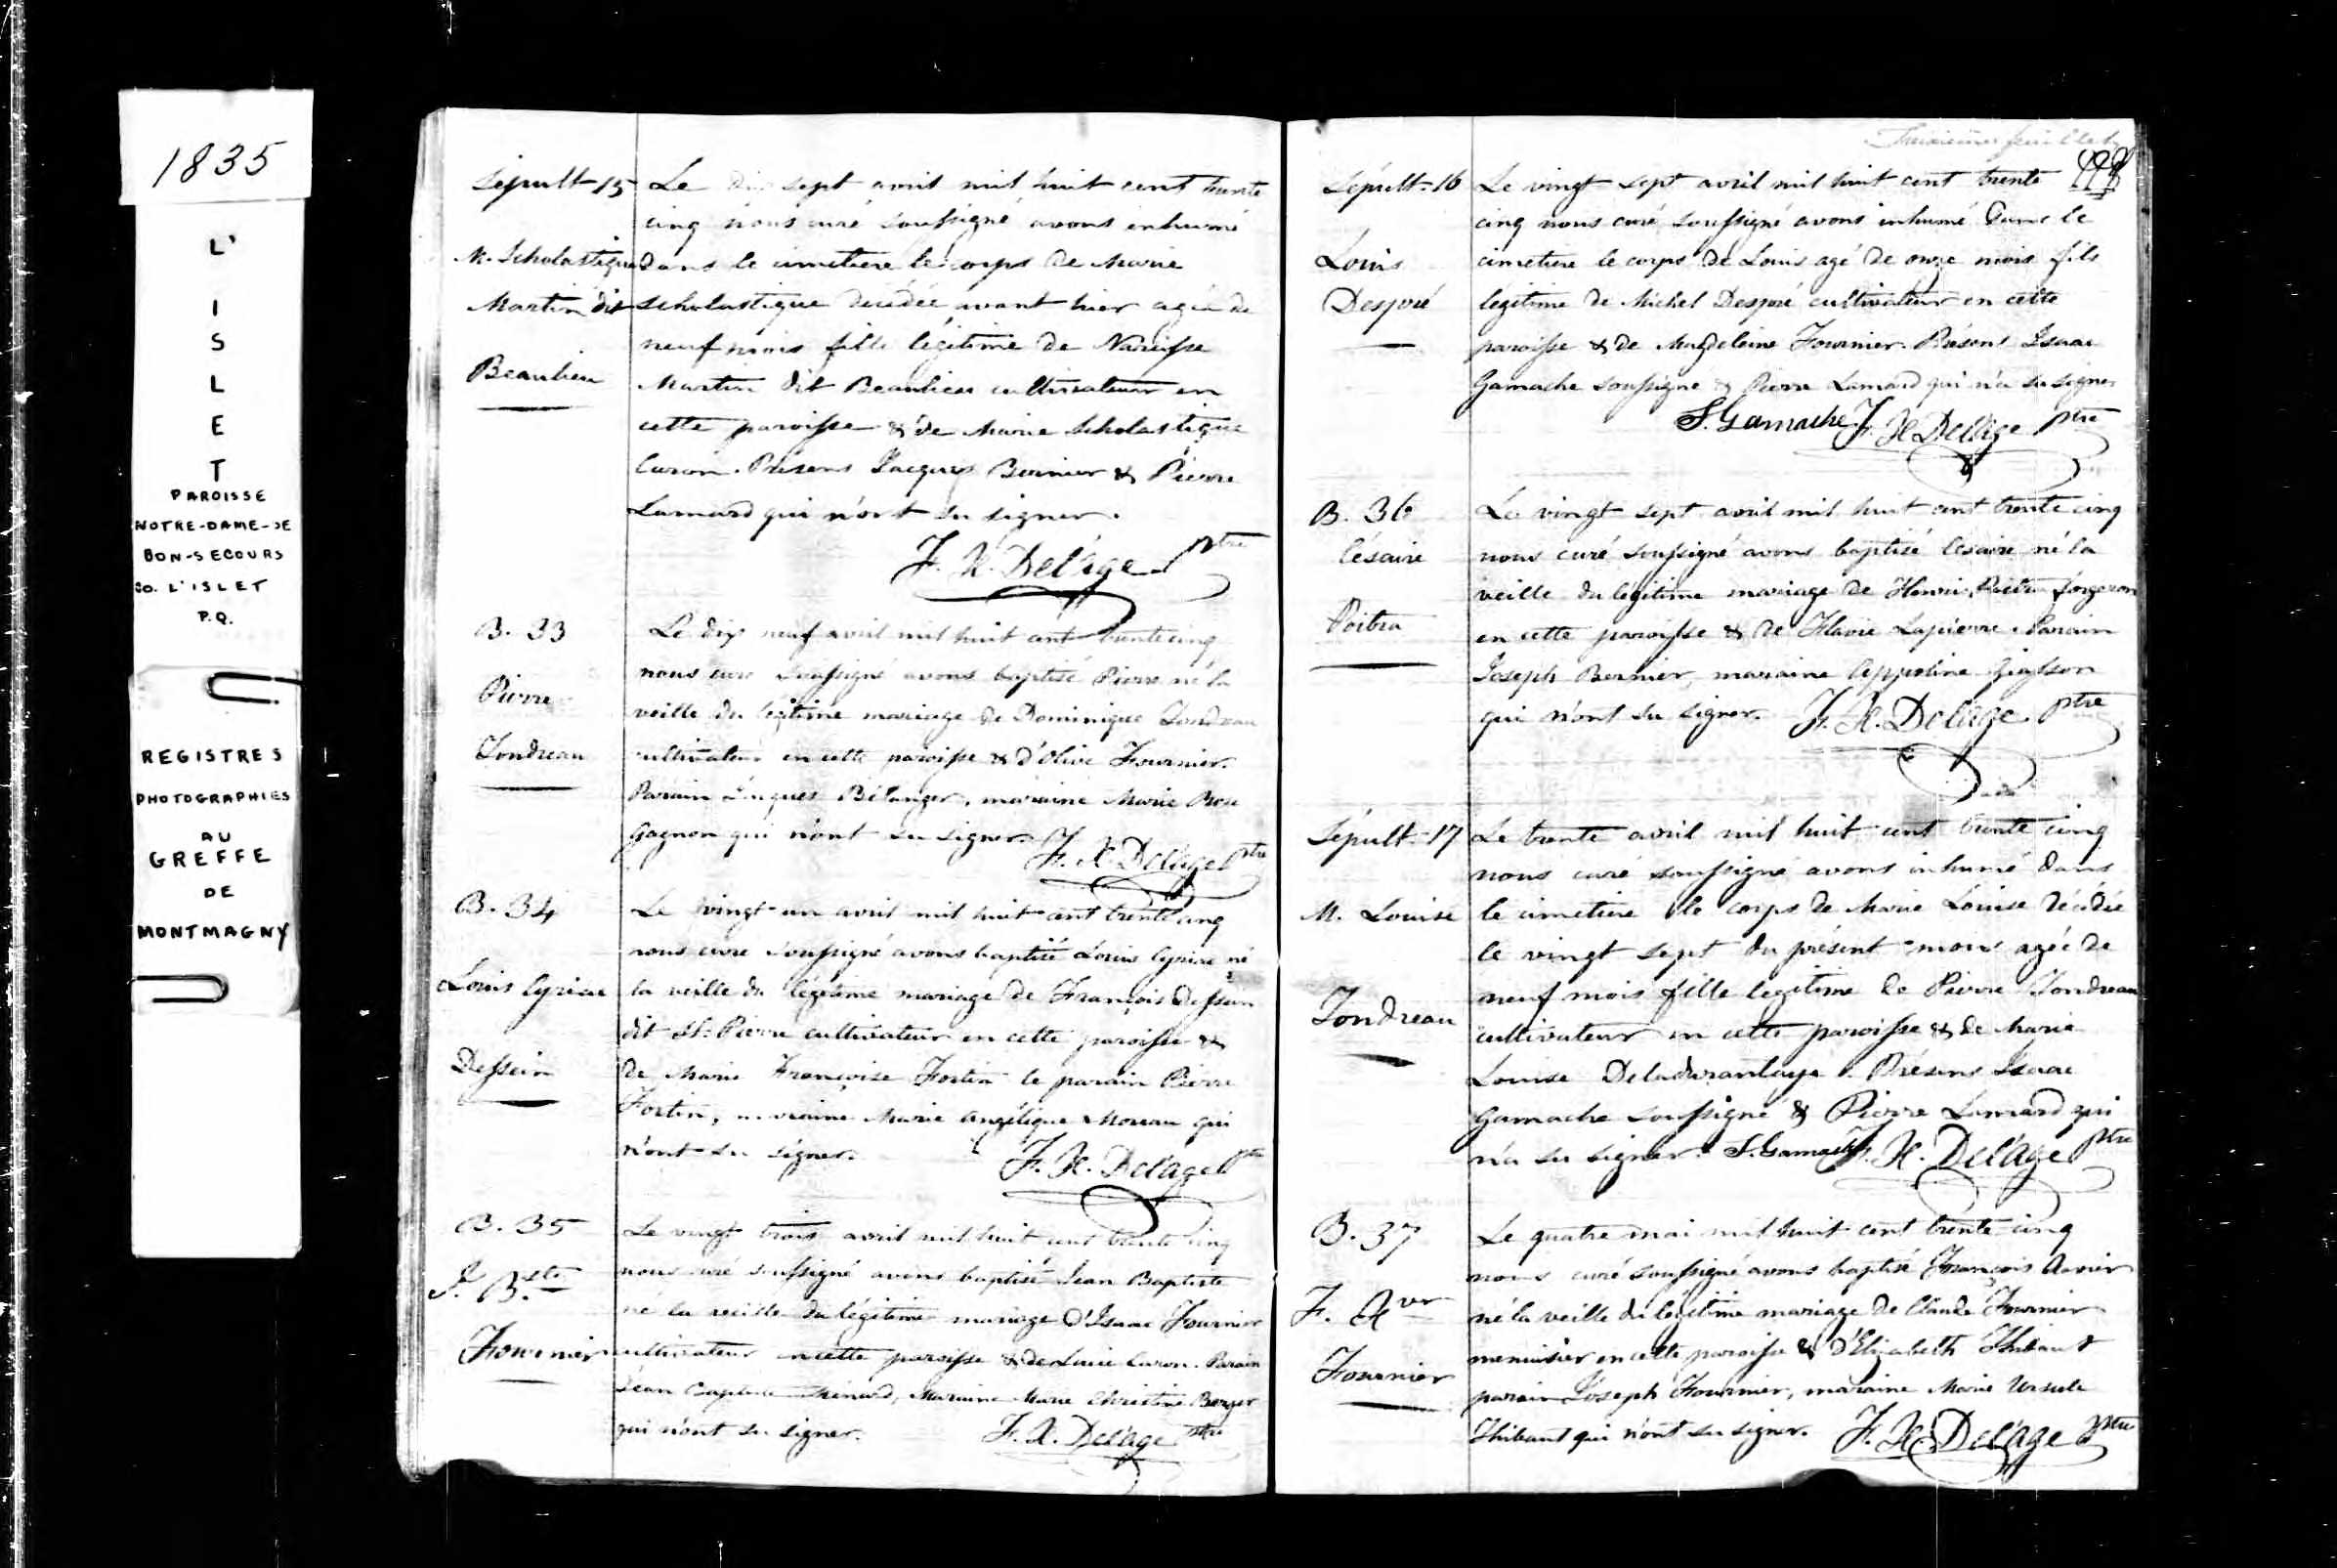 1835
L'
I
S
L
E
T
PAROISSE
NOTRE-DAME-DE
BON-SECOURS
CO. L'ISLET
P.Q.
REGISTRES
PHOTOGRAPHIES
AU
GREFFE
DE
MONTMAGNY
Sépult-15
M. Scholastique
Martin dit
Beaulieu
Le dix sept avril mil huit cent trente
cinq nous curé soussigné avons inhumé
dans le cimetiere le corps de Marie
Scholastique décédée avant hier agée de
neuf mois fille légitime de Narcisse
Martin dit Beaulieu cultivateur en
cette paroisse & de Marie Scholastique
Caron. Présens Jacques Bernier & Pierre
Lamard qui n'ont su signer.
F. X. Delâge ptre
B. 33
Pierre
Tondreau
Le dix neuf avril mil huit cent trente cinq
nous curé soussigné avons baptisé Pierre né la
veille du légitime mariage de Dominique Tondreau
cultivateur en cette paroisse & d'Olive Fournier.
Parain Jacques Bélanger, maraine Marie Rose
Gagnon qui n'ont su signer. F. X. Delâge ptre
B. 34
Louis Cyriac
Dessein
Le vingt un avril mil huit cent trente cinq
nous curé soussigné avons baptisé Louis Cyriac né
la veille du légitime mariage de François Dessein
dit St. Pierre cultivateur en cette paroisse &
de Marie Françoise Fortin le parain Pierre
Fortin, maraine Marie Angélique Moreau qui
n'ont su signer. F. X. Delâge ptre
B. 35
J. Bste
Fournier
Le vingt trois avril mil huit cent trente cinq
nous curé soussigné avons baptisé Jean Baptiste
né la veille du légitime mariage d'Isaac Fournier
cultivateur en cette paroisse & de Lucie Caron. Parain
Jean Baptiste Ménard, Maraine Marie Christine Berger
qui n'ont su signer. F. X. Delâge ptre
feuillet
Sépult-16
Louis
Desporé
Le vingt sept avril mil huit cent trente
cinq nous curé soussigné avons inhumé dans le
cimetiere le corps de Louis agé de onze mois fils
légitime de Michel Desporé cultivateur en cette
paroisse & de Magdeleine Fournier. Présens Isaac
Gamache soussigné & Pierre Lamard qui n'a su signer
I. Gamache F. X. Delâge ptre
B. 36
Césaire
Poitra
Le vingt sept avril mil huit cent trente cinq
nous curé soussigné avons baptisé Césaire né la
veille du légitime mariage de Henri Poitra forgeron
en cette paroisse & de Flavie Lapierre. Parain
Joseph Bernier, maraine Appoline Giasson
qui n'ont su signer. F. X. Delâge ptre
Sépult-17
M. Louise
Tondreau
Le trente avril mil huit cent trente cinq
nous curé soussigné avons inhumé dans
le cimetiere le corps de Marie Louise décédée
le vingt sept du présent mois agée de
neuf mois fille légitime de Pierre Tondreau
cultivateur en cette paroisse & de Marie
Louise Deladurantaye. Présens Isaac
Gamache soussigné & Pierre Lamard qui
n'a su signer. I. Gamache F. X. Delâge ptre
B. 37
F. Xver
Fournier
Le quatre mai mil huit cent trente cinq
nous curé soussigné avons baptisé François Xavier
né la veille du légitime mariage de Claude Fournier
menuisier en cette paroisse & d'Elizabeth Thibaut
parain Joseph Fournier, maraine Marie Ursule
Thibaut qui n'ont su signer. F. X. Delâge ptre